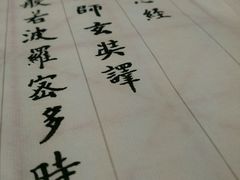 心經
師玄奘譯
般若波羅密多時